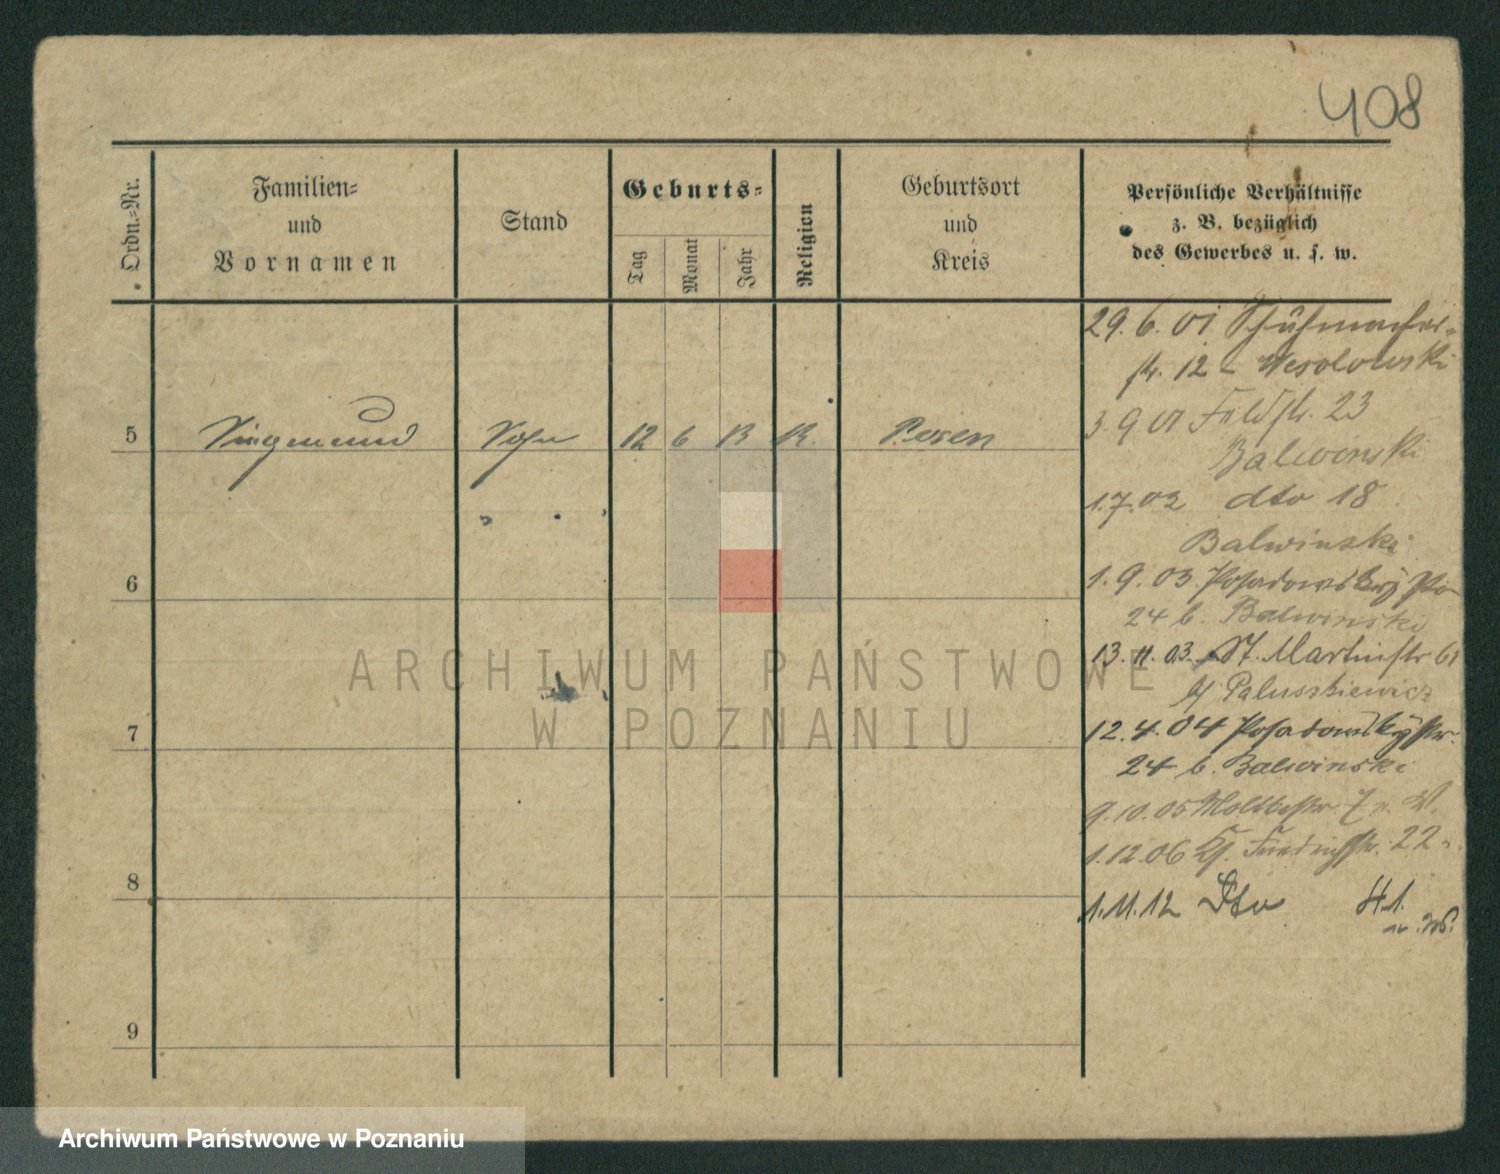 408
Ordn.-Nr.
Familien-
und
Vornamen
Stand
Geburts-
Tag
Monat
Jahr
Religion
Geburtsort
und
Kreis
Persönliche Verhältnisse
z. B. bezüglich
des Gewerbes u. s. w.
29.6.01 Schuhmacher-
str. 12 - Wesolowski
5 Siegmund Sohn 12 6 13 K. Posen
3.9.01 Feldstr. 23
Balwinski
1.7.02 dto 18
Balwinski
6
1.9.03. Posadowsky
24 b. Balwinski
13.11.03. St. Martinstr 61
b/ Paluszkiewicz
7
12.4.04 Posadowskystr.
24 b. Balwinski
9.10.05 Moltkestr 7
1.12.06 Kl. Friedrichstr. 22
8
1.11.12 Dto H.1.
9
ARCHIWUM PAŃSTWOWE
W POZNANIU
Archiwum Państwowe w Poznaniu